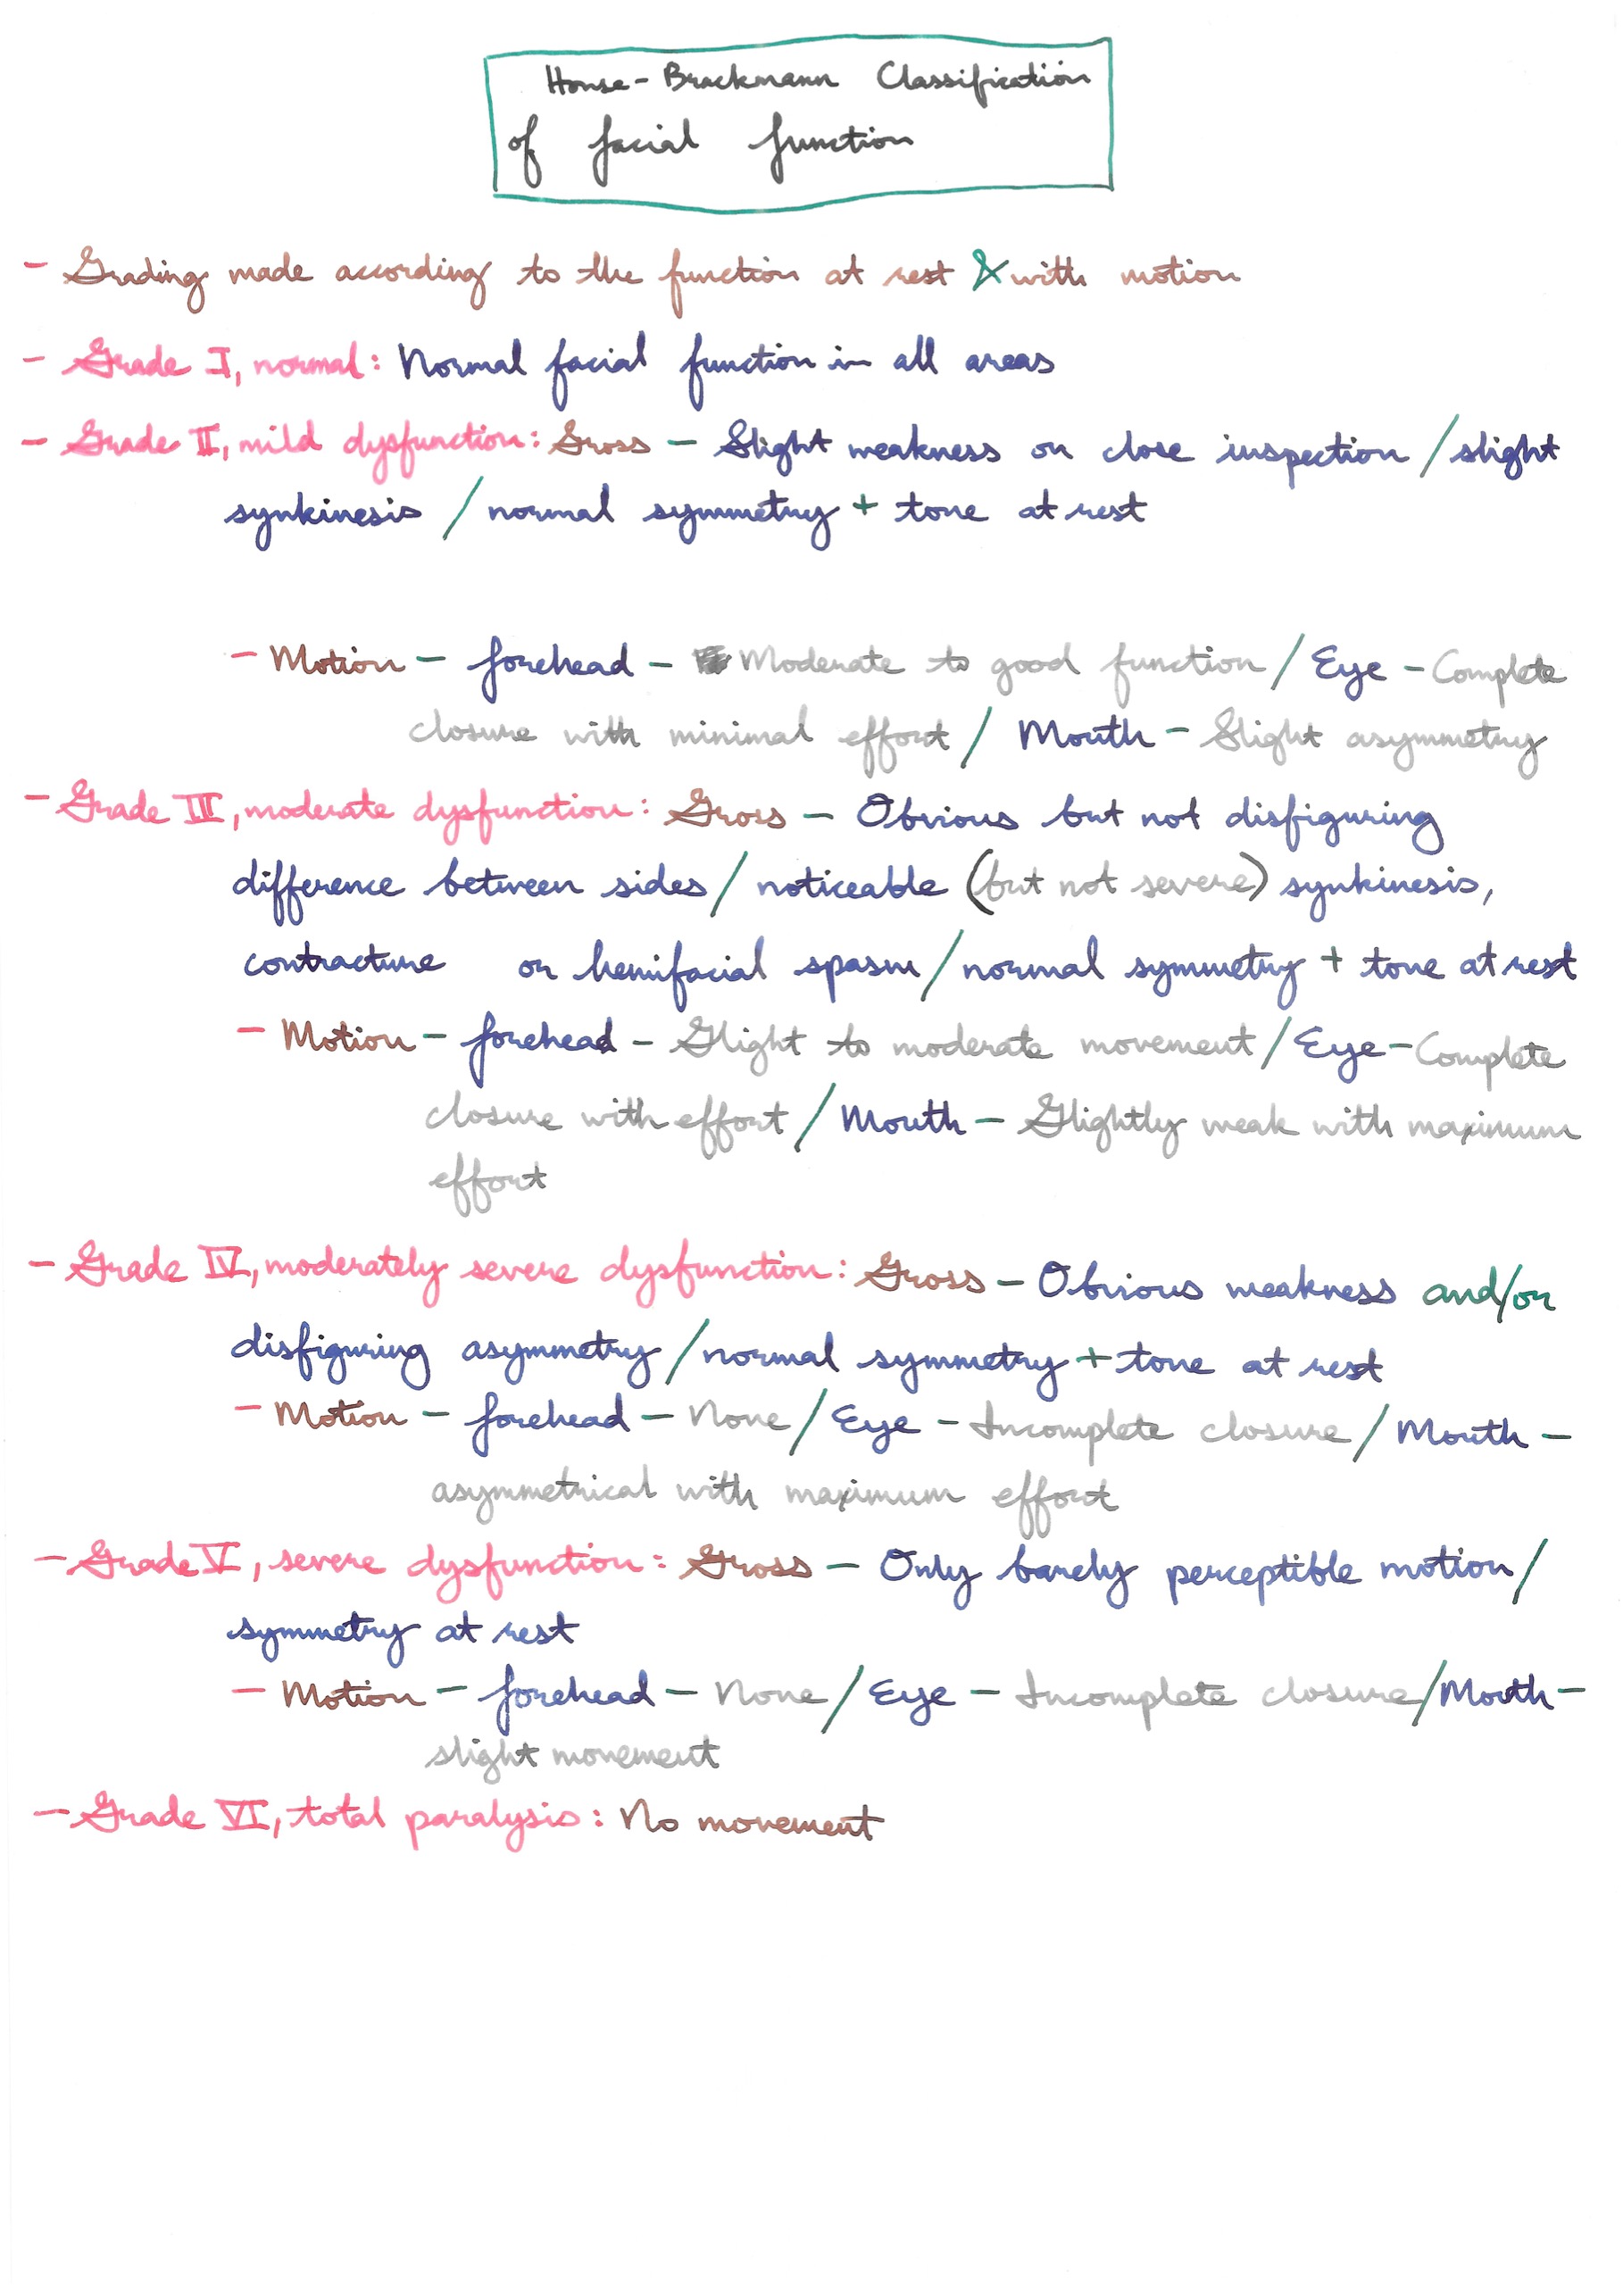 House-Brackmann Classification
of facial function
- Grading made according to the function at rest & with motion
- Grade I, normal: Normal facial function in all areas
- Grade II, mild dysfunction: Gross - Slight weakness on close inspection / slight
synkinesis / normal symmetry + tone at rest
- Motion - forehead - Moderate to good function / Eye - Complete
closure with minimal effort / Mouth - Slight asymmetry
- Grade III, moderate dysfunction: Gross - Obvious but not disfiguring
difference between sides / noticeable (but not severe) synkinesis,
contracture or hemifacial spasm / normal symmetry + tone at rest
- Motion - forehead - Slight to moderate movement / Eye - Complete
closure with effort / Mouth - Slightly weak with maximum
effort
- Grade IV, moderately severe dysfunction: Gross - Obvious weakness and/or
disfiguring asymmetry / normal symmetry + tone at rest
- Motion - forehead - None / Eye - Incomplete closure / Mouth -
asymmetrical with maximum effort
- Grade V, severe dysfunction: Gross - Only barely perceptible motion /
symmetry at rest
- Motion - forehead - None / Eye - Incomplete closure / Mouth -
slight movement
- Grade VI, total paralysis: No movement